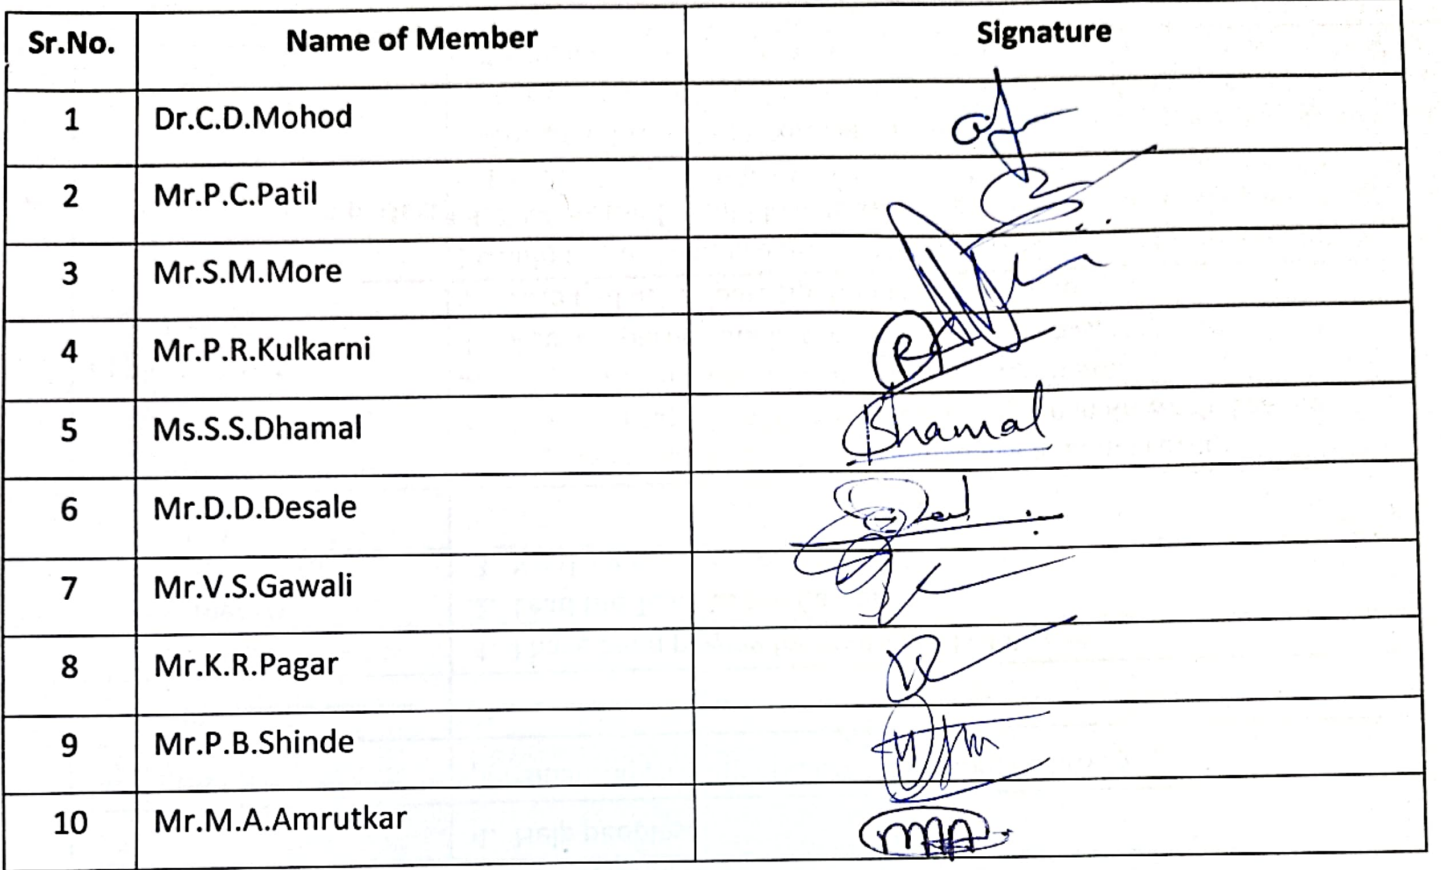 Sr.No. Name of Member Signature
1 Dr.C.D.Mohod
2 Mr.P.C.Patil
3 Mr.S.M.More
4 Mr.P.R.Kulkarni
5 Ms.S.S.Dhamal Dhamal
6 Mr.D.D.Desale
7 Mr.V.S.Gawali
8 Mr.K.R.Pagar
9 Mr.P.B.Shinde
10 Mr.M.A.Amrutkar MAA